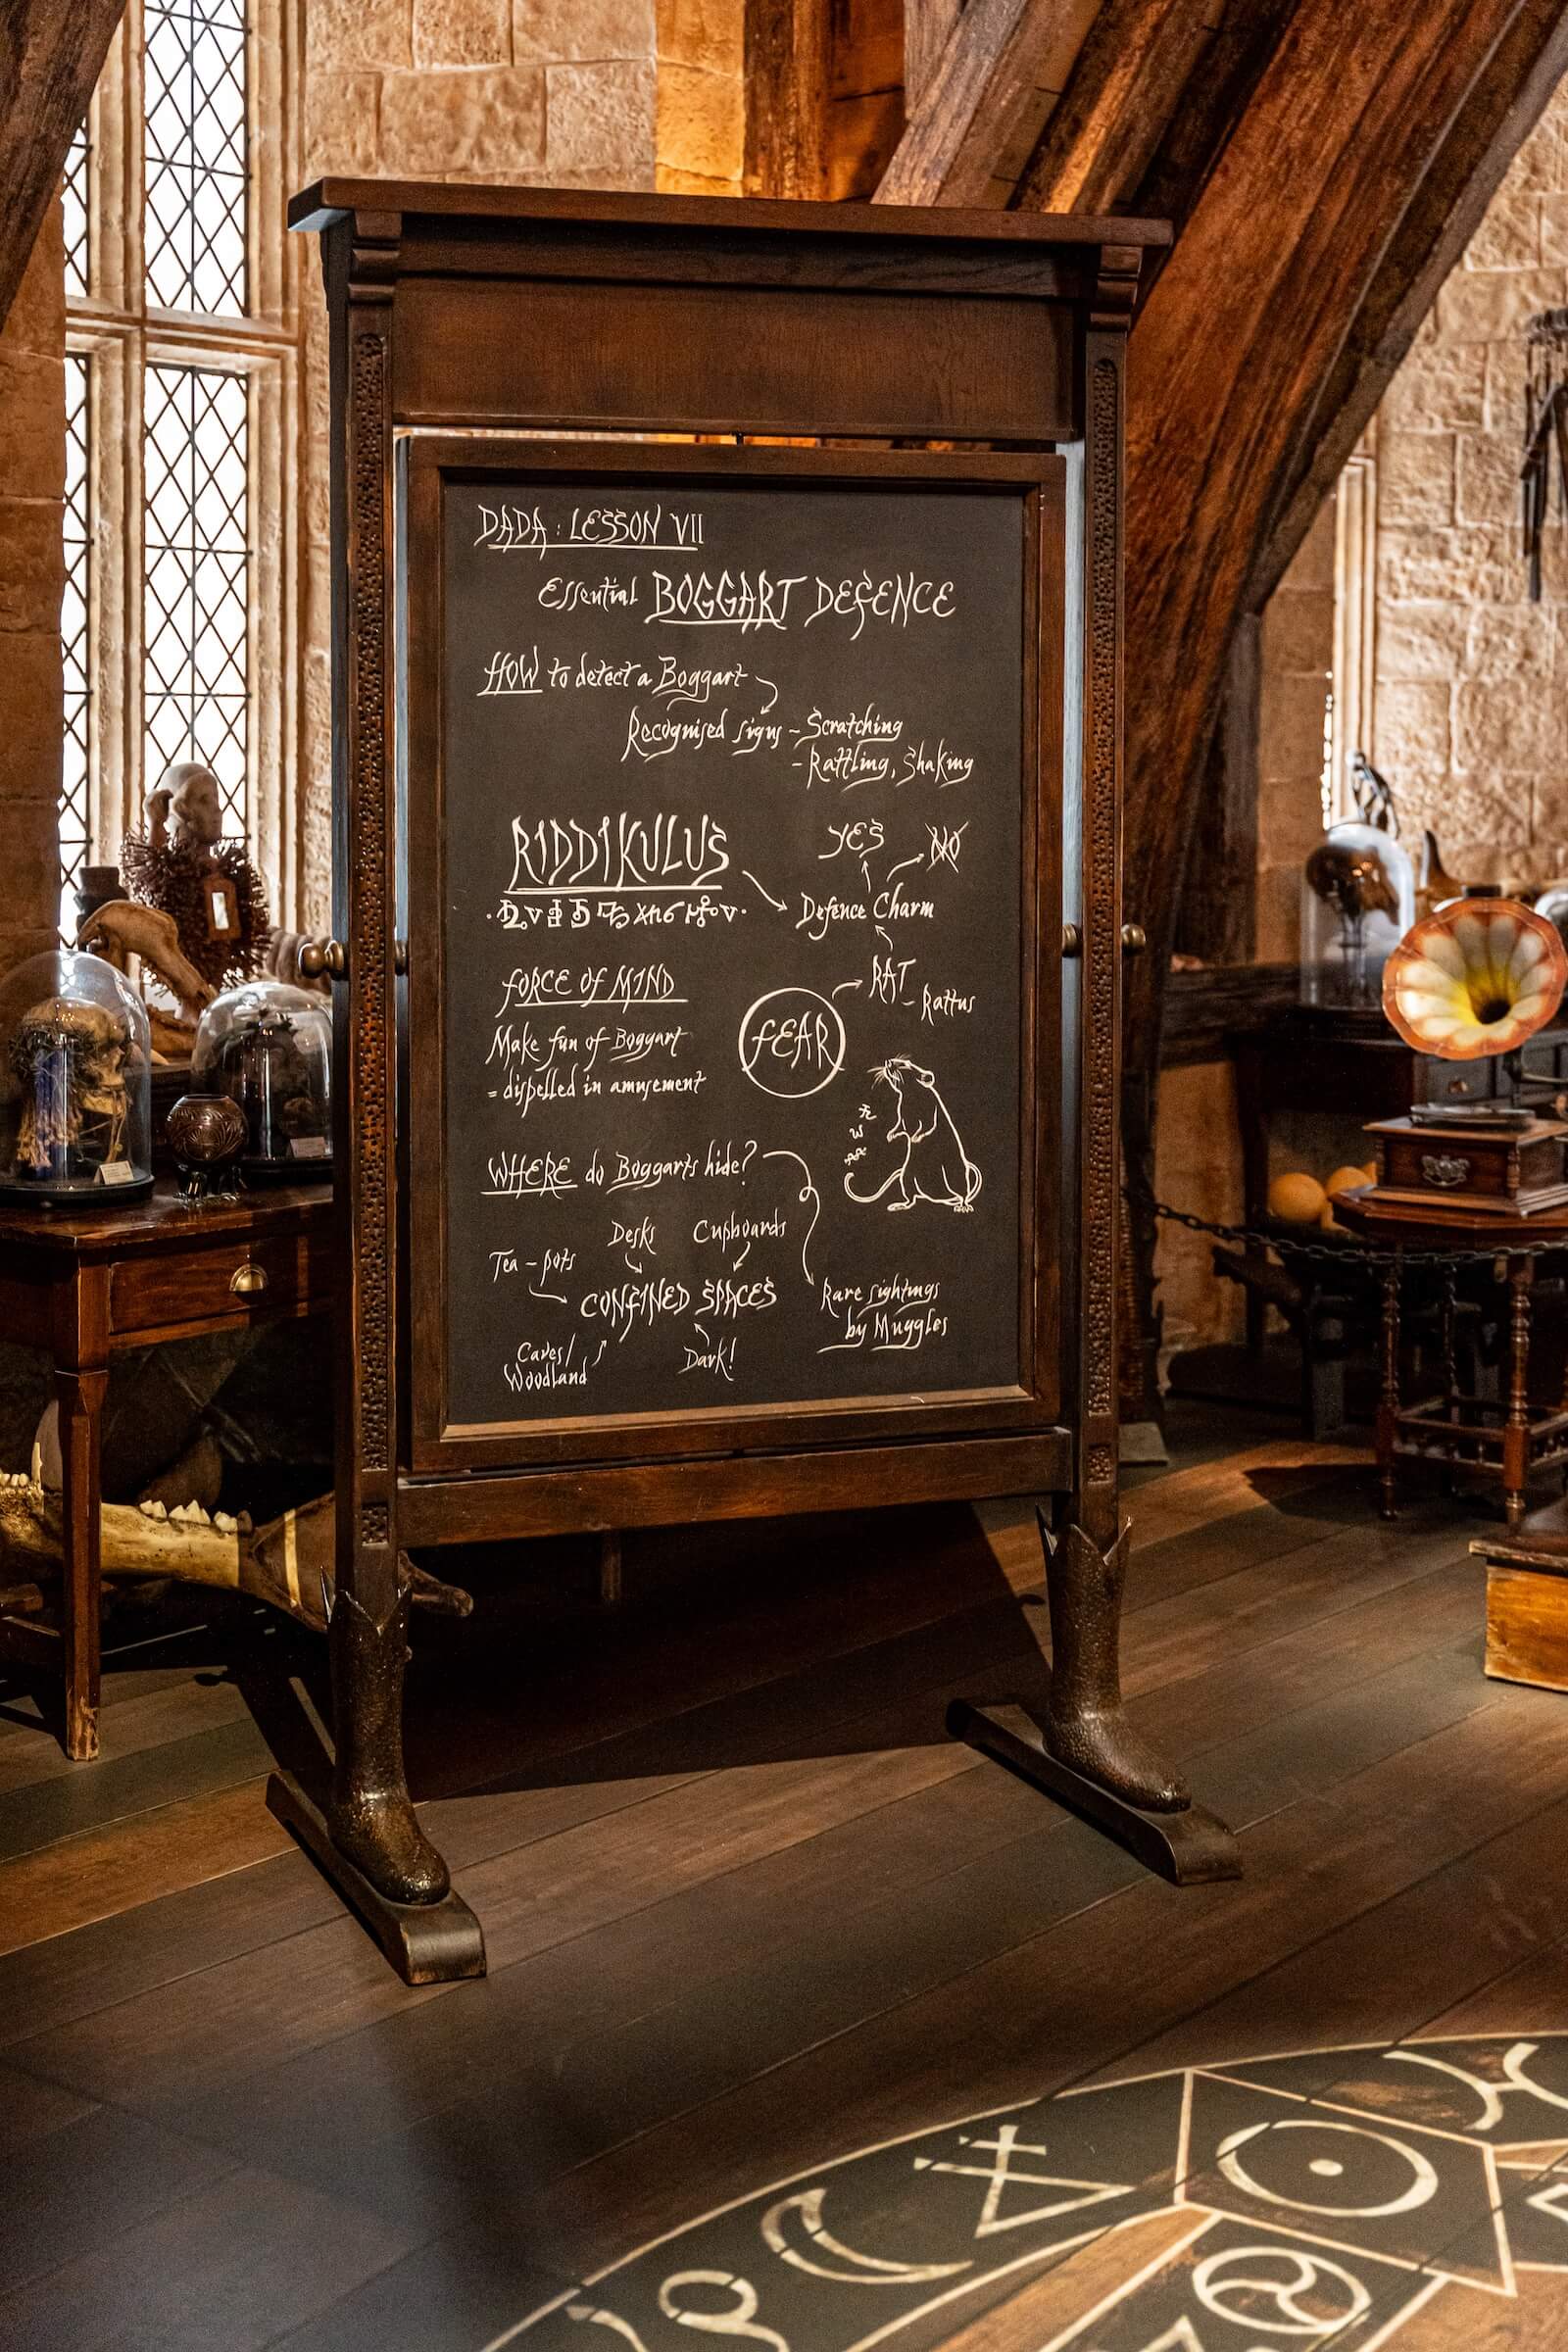 DADA : LESSON VII
Essential BOGGART DEFENCE
HOW to detect a Boggart
Recognised signs - Scratching
- Rattling, Shaking
RIDDIKULUS
YES
NO
Defence Charm
FORCE OF MIND
Make fun of Boggart
= dispelled in amusement
FEAR
RAT
- Rattus
WHERE do Boggarts hide?
Desks
Cupboards
Tea-pots
CONFINED SPACES
Caves/
Woodland
Dark!
Rare sightings
by Muggles